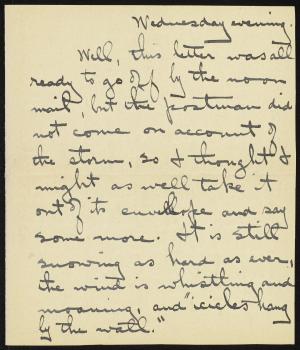 Wednesday evening.
Well, this letter was all
ready to go off by the noon
mail, but the postman did
not come on account of
the storm, so I thought I
might as well take it
out of its envellope and say
some more. It is still
snowing as hard as ever,
the wind is whistling and
moaning, and "icicles hang
by the wall."